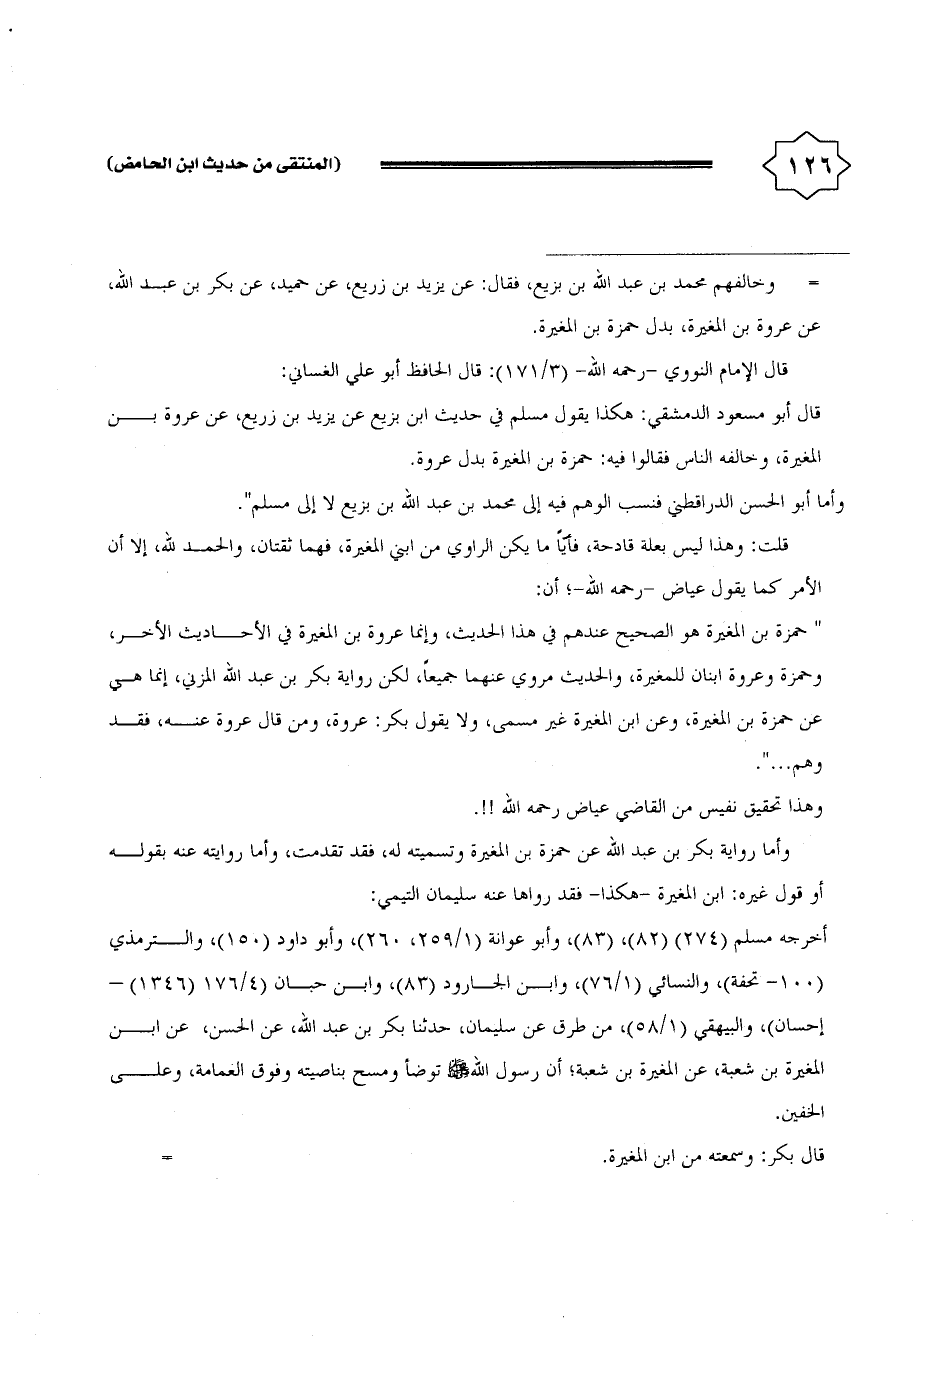 ١٢٦ (المنتقى من حديث ابن الحامض)
= وخالفهم محمد بن عبد الله بن بزيع، فقال: عن يزيد بن زريع، عن حميد، عن بكر بن عبد الله،
عن عروة بن المغيرة، بدل حمزة بن المغيرة.
قال الإمام النووي -رحمه الله- (١٧١/٣): قال الحافظ أبو علي الغساني:
قال أبو مسعود الدمشقي: هكذا يقول مسلم في حديث ابن بزيع عن يزيد بن زريع، عن عروة بن
المغيرة، وخالفه الناس فقالوا فيه: حمزة بن المغيرة بدل عروة.
وأما أبو الحسن الدراقطني فنسب الوهم فيه إلى محمد بن عبد الله بن بزيع لا إلى مسلم".
قلت: وهذا ليس بعلة قادحة، فأيّاً ما يكن الراوي من ابني المغيرة، فهما ثقتان، والحمد لله، إلا أن
الأمر كما يقول عياض -رحمه الله-؛ أن:
" حمزة بن المغيرة هو الصحيح عندهم في هذا الحديث، وإنما عروة بن المغيرة في الأحاديث الأخر،
وحمزة وعروة ابنان للمغيرة، والحديث مروي عنهما جميعاً، لكن رواية بكر بن عبد الله المزني، إنما هي
عن حمزة بن المغيرة، وعن ابن المغيرة غير مسمى، ولا يقول بكر: عروة، ومن قال عروة عنه، فقد
وهم...".
وهذا تحقيق نفيس من القاضي عياض رحمه الله !!.
وأما رواية بكر بن عبد الله عن حمزة بن المغيرة وتسميته له، فقد تقدمت، وأما روايته عنه بقوله
أو قول غيره: ابن المغيرة -هكذا- فقد رواها عنه سليمان التيمي:
أخرجه مسلم (٢٧٤) (٨٢)، (٨٣)، وأبو عوانة (٢٥٩/١، ٢٦٠)، وأبو داود (١٥٠)، والترمذي
(١٠٠- تحفة)، والنسائي (٧٦/١)، وابن الجارود (٨٣)، وابن حبان (١٧٦/٤ (١٣٤٦) –
إحسان)، والبيهقي (٥٨/١)، من طرق عن سليمان، حدثنا بكر بن عبد الله، عن الحسن، عن ابن
المغيرة بن شعبة، عن المغيرة بن شعبة؛ أن رسول الله ﷺ توضأ ومسح بناصيته وفوق العمامة، وعلى
الخفين.
قال بكر: وسمعته من ابن المغيرة. =